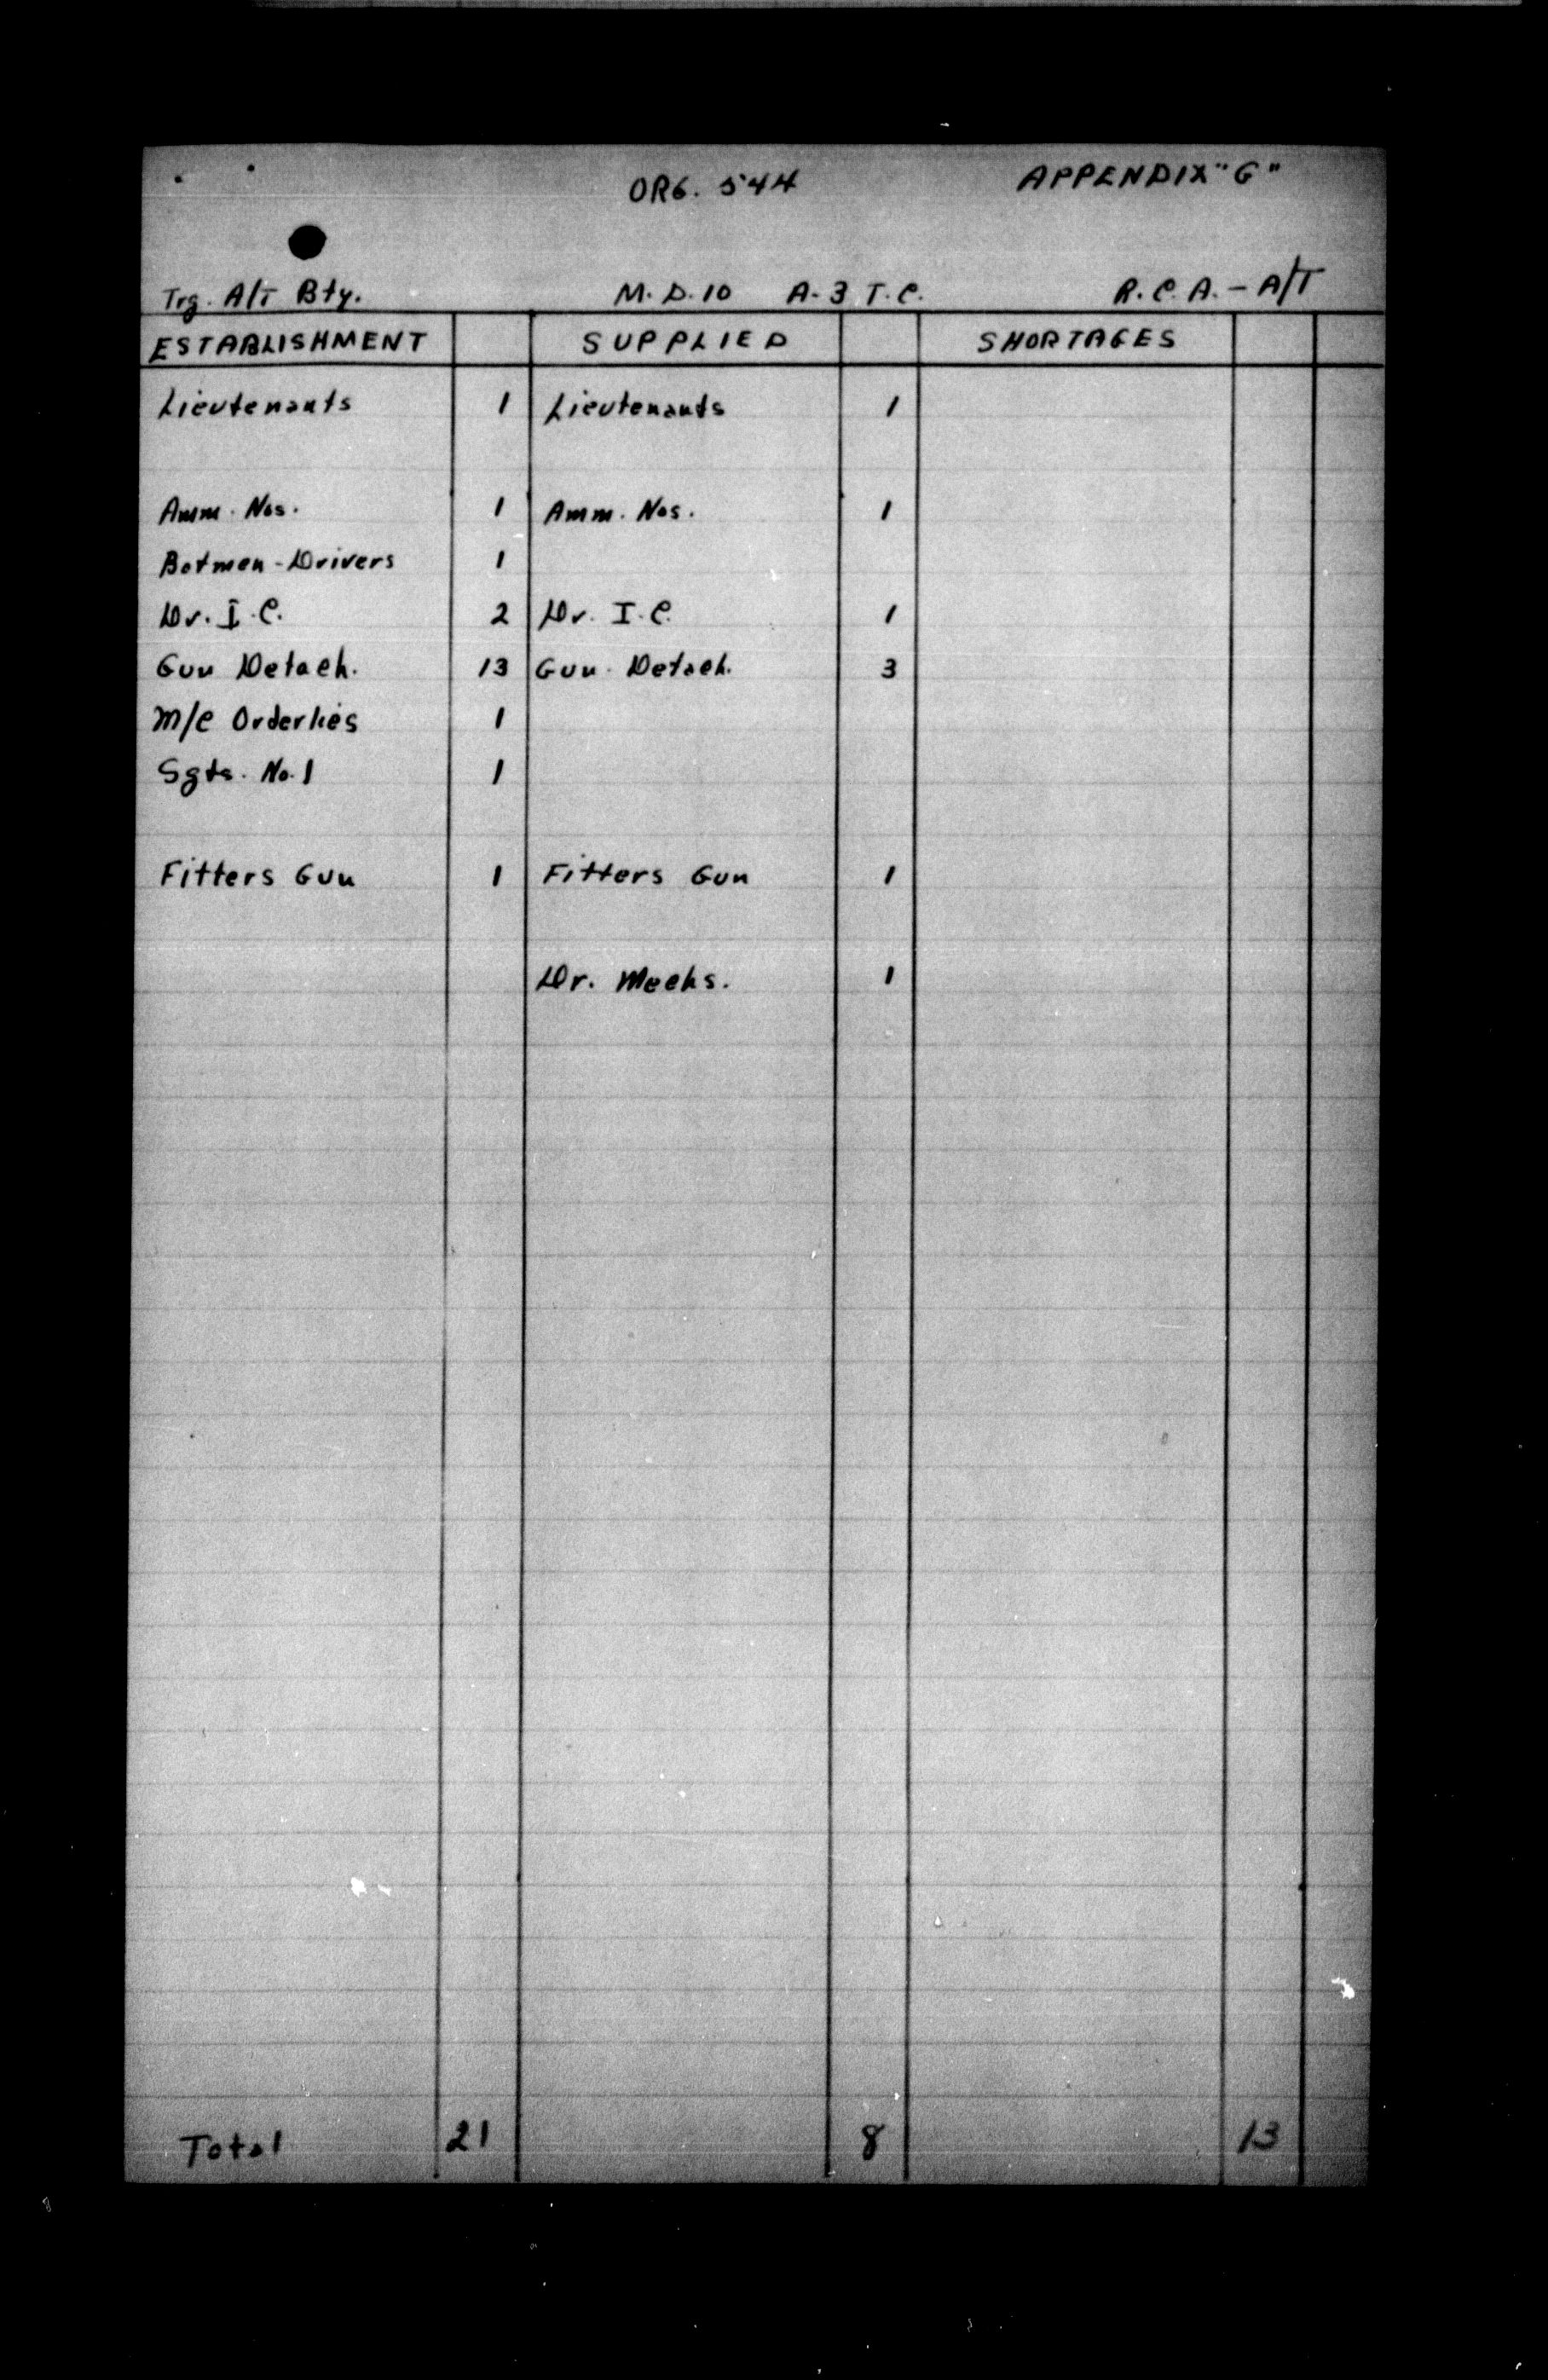 ORG. 544 APPENDIX "G"
Trg. A/T Bty. M.D.10 A-3 T.C. R.C.A. - A/T
ESTABLISHMENT SUPPLIED SHORTAGES
Lieutenants 1 Lieutenants 1
Amm. Nos. 1 Amm. Nos. 1
Batmen-Drivers 1
Dr. I.C. 2 Dr. I.C. 1
Gun Detach. 13 Gun Detach. 3
M/C Orderlies 1
Sgts. No.1 1
Fitters Gun 1 Fitters Gun 1
Dr. Mechs. 1
Total 21 8 13